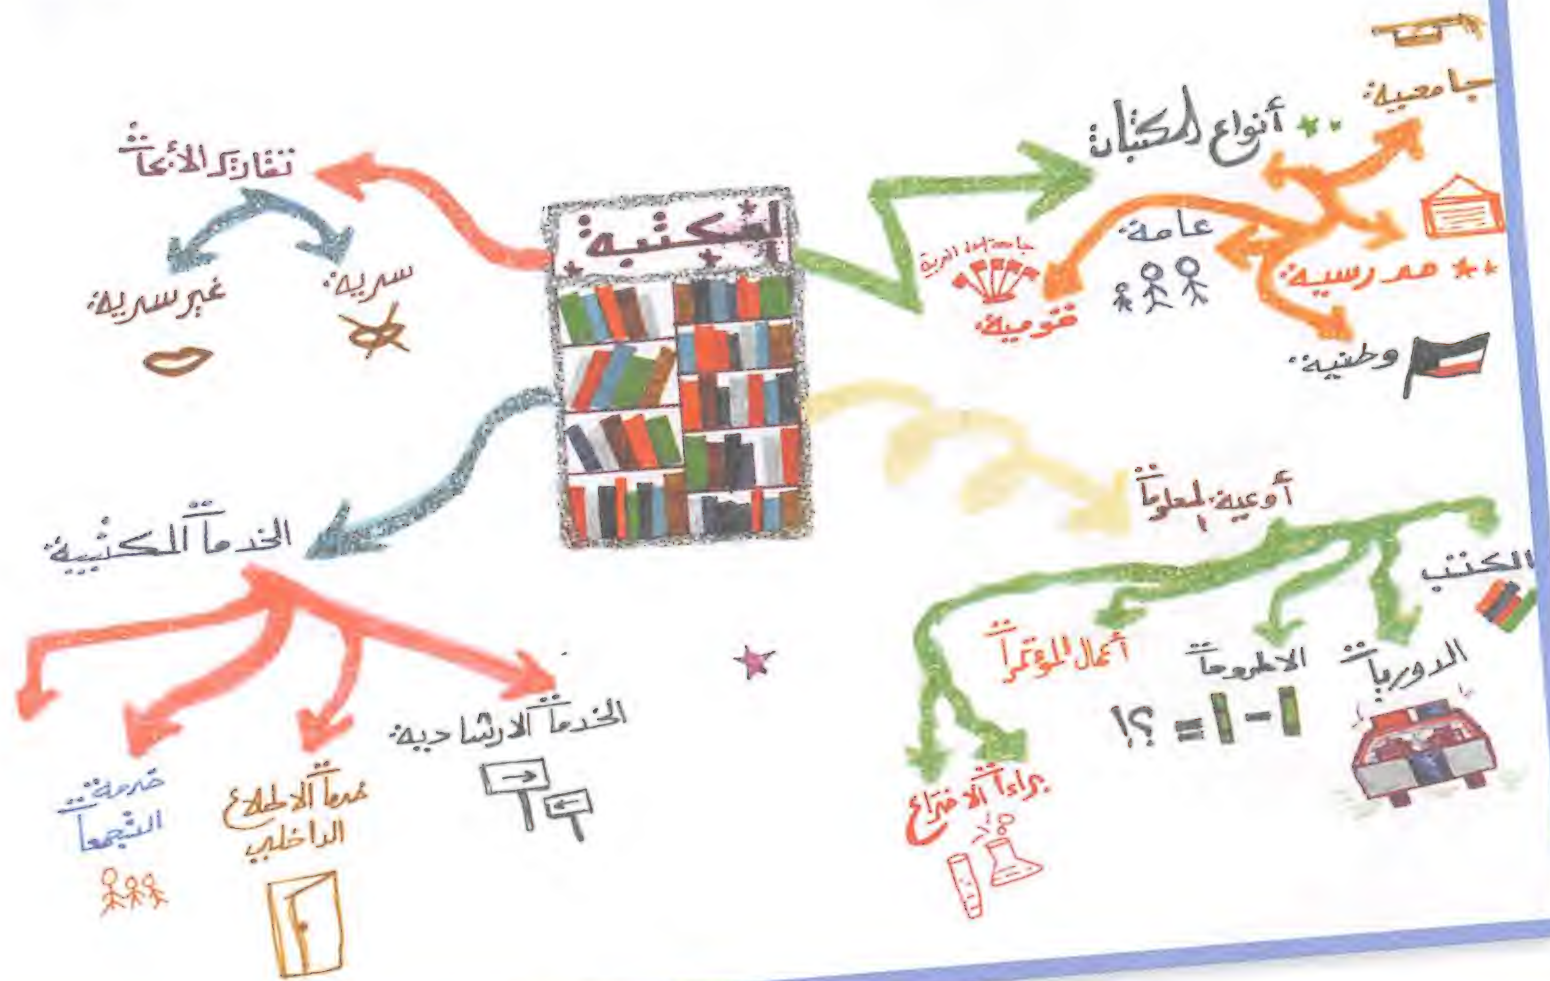 المكتبة
أنواع المكتبات
جامعية
مدرسية
وطنية
عامة
قومية
جامعة الدول العربية
أوعية المعلومات
الكتب
الدوريات
الاطروحات
؟! =  -
أعمال المؤتمرات
براءات الاختراع
تقارير الأبحاث
سرية
غير سرية
الخدمات المكتبية
الخدمات الارشادية
خدمات الاطلاع
الداخلي
خدمة
التجمعات